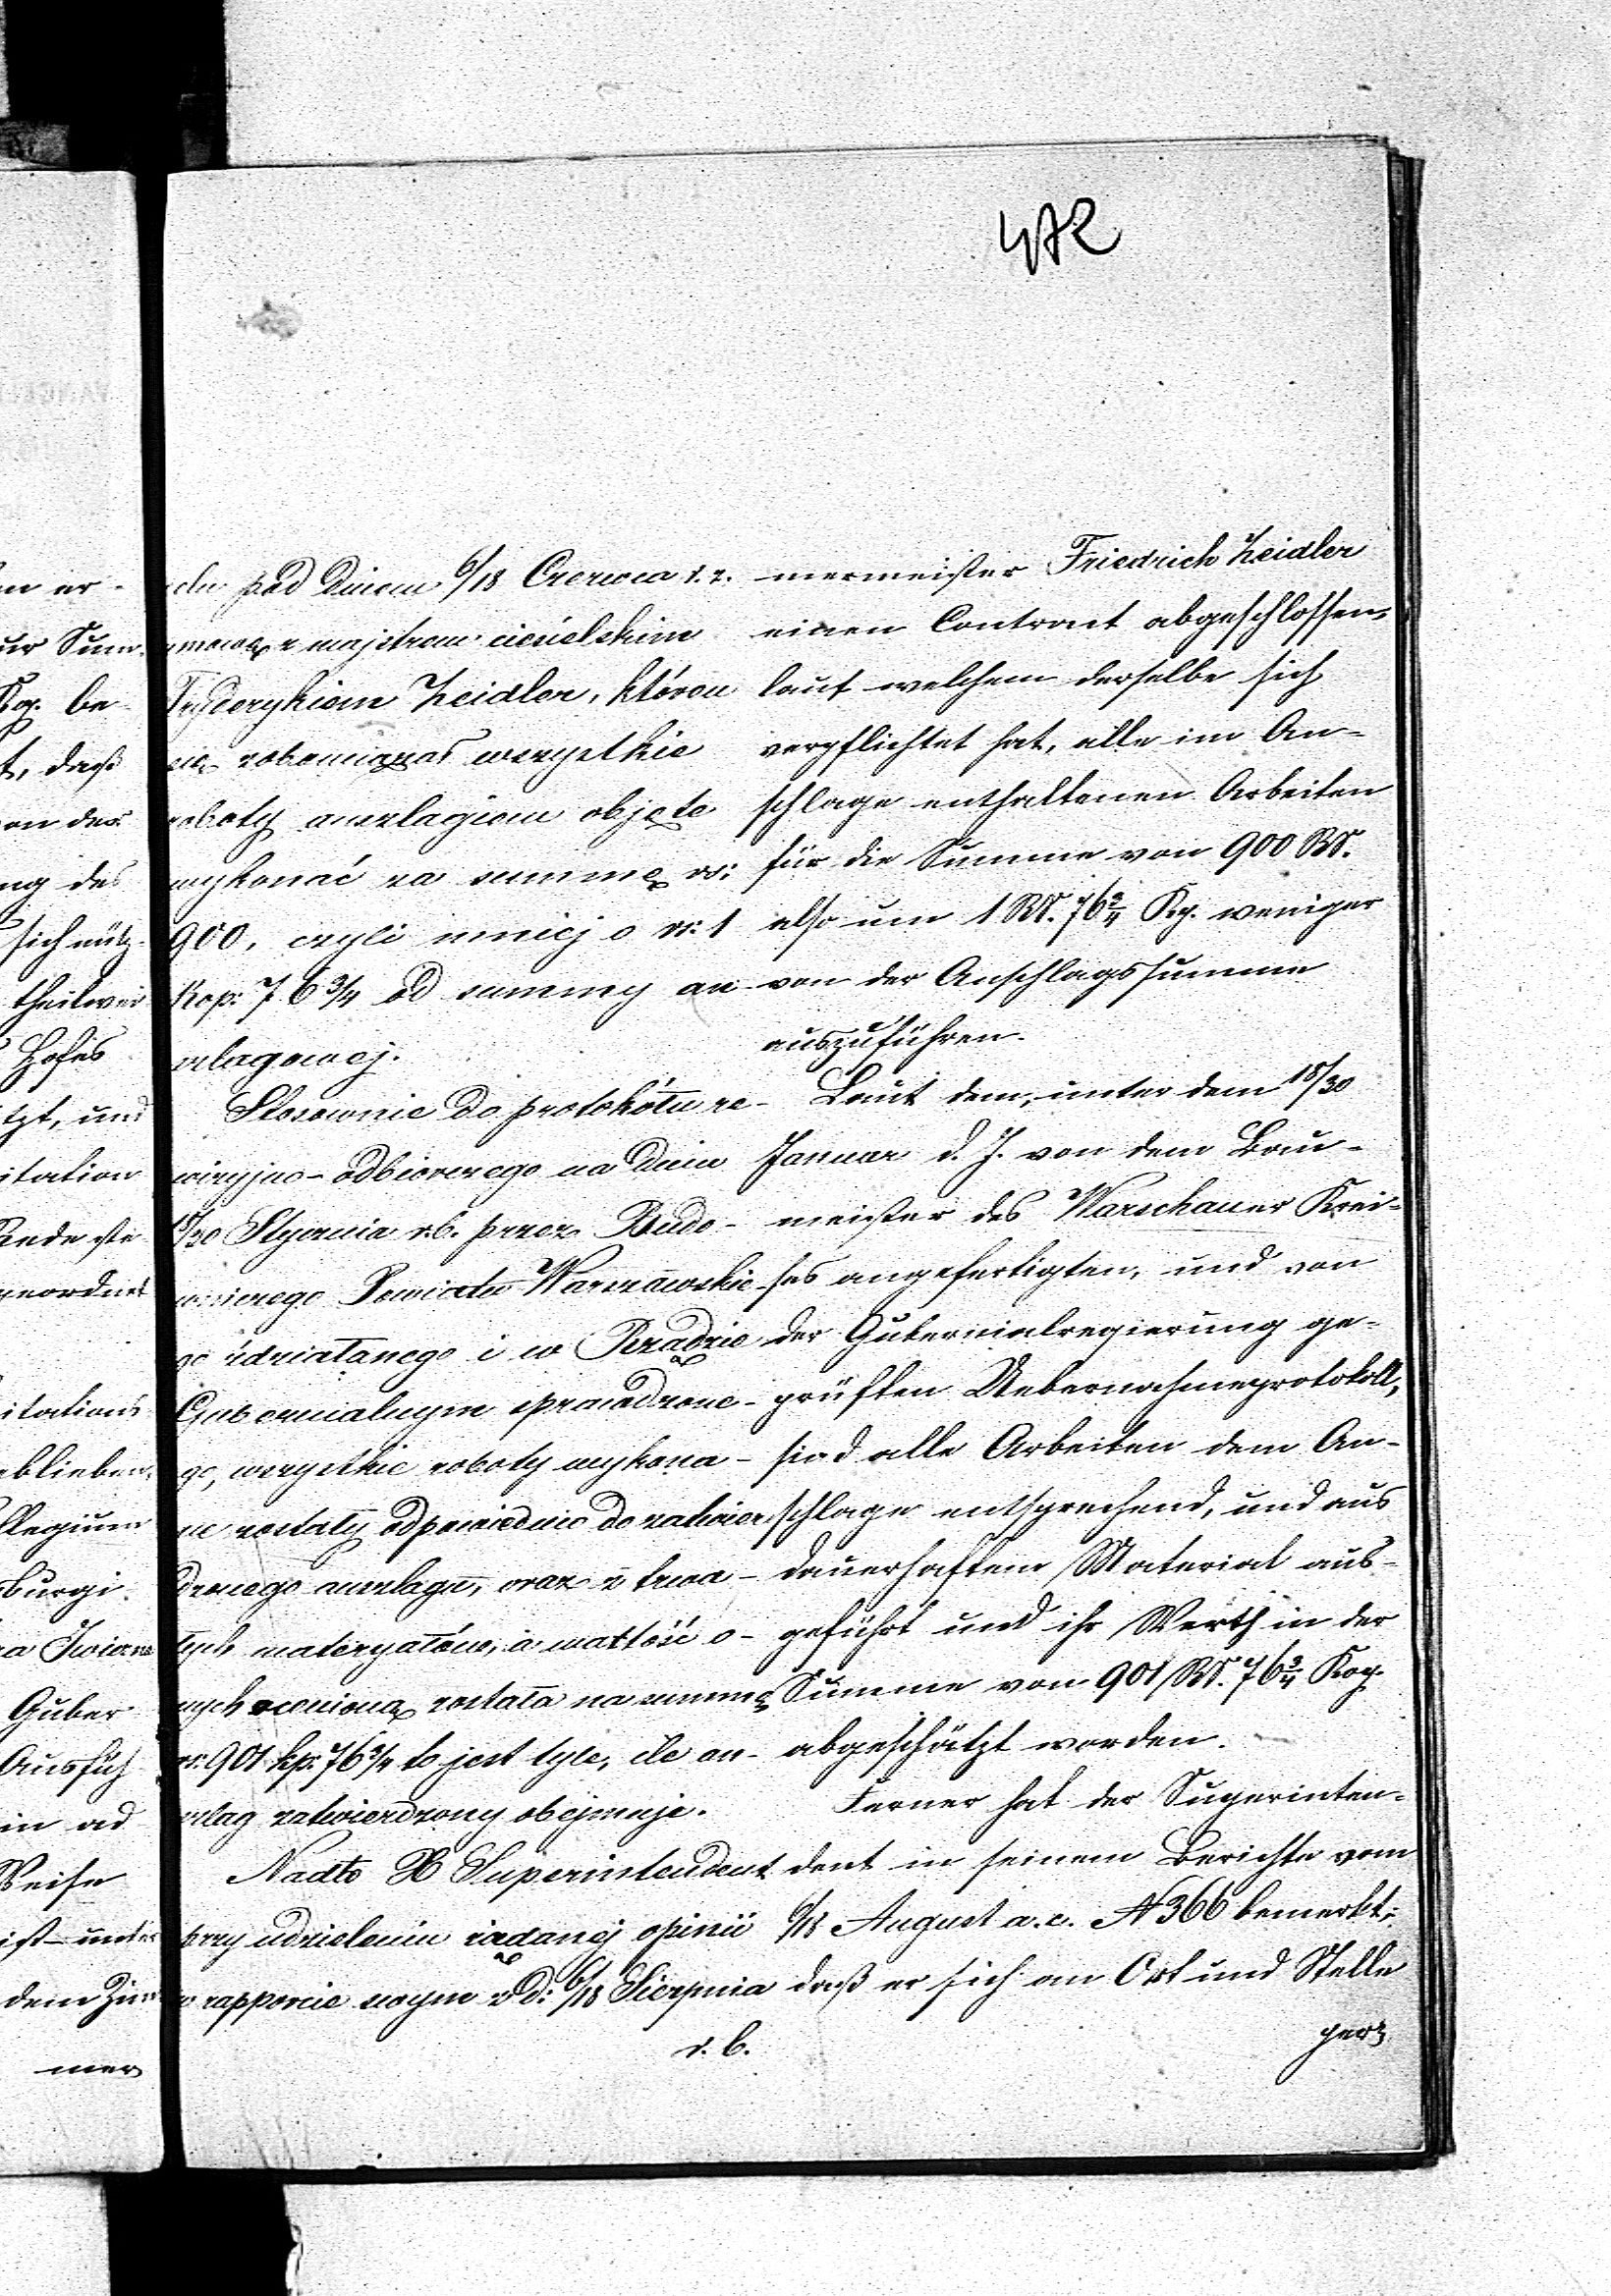 472
pod dniem 6/18 Czerwca r. z.
umowę z majstrem ciesielskim
Fryderykiem Zeidler, któren
wszystkie
roboty anszlagiem objęte
wykonać za summę rs:
900, czyli mniej o rs: 1
Kop: 76 3/4 od summy an-
szlagowej.
Stosownie do protokółu re-
wizyjno-odbiorczego na dniu
18/30 Stycznia r. b. przez Budo-
wniczego Powiatu Warszawskie-
go zdziałanego i w Rządzie
Gubernialnym sprawdzone-
go, wszystkie roboty wykona-
ne zostały odpowiednio do zatwier
dzonego anszlagu, oraz z trwa-
łych materyałów, a wartość o-
nych oceniona została na summę
rs: 901 kp: 76 3/4 to jest tyle, ile an-
szlag zatwierdzony obejmuje.
Nadto X Superintendent
przy udzieleniu żądanej opinii
w rapporcie swym z d: 6/18 Sierpnia
r. b.
mermeister Friedrich Zeidler
einen Contract abgeschlossen,
laut welchem derselbe sich
verpflichtet hat, alle im An-
schlage enthaltenen Arbeiten
für die Summe von 900 RS.
also um 1 RS. 76 3/4 Kp. weniger
von der Anschlagssumme
auszuführen.
Laut dem, unter dem 18/30
Januar d. J. von dem Bau-
meister des Warschauer Krei-
ses angefertigten, und von
der Gubernialregierung ge-
prüften Uebernahmeprotokoll,
sind alle Arbeiten dem An-
schlage entsprechend, und aus
dauerhaftem Material aus-
geführt und ihr Werth in der
Summe von 901 RS. 76 3/4 Kop.
abgeschätzt worden.
Ferner hat der Superinten-
dent in seinem Berichte vom
6/18 August a. c. N 366 bemerkt,
daß er sich an Ort und Stelle